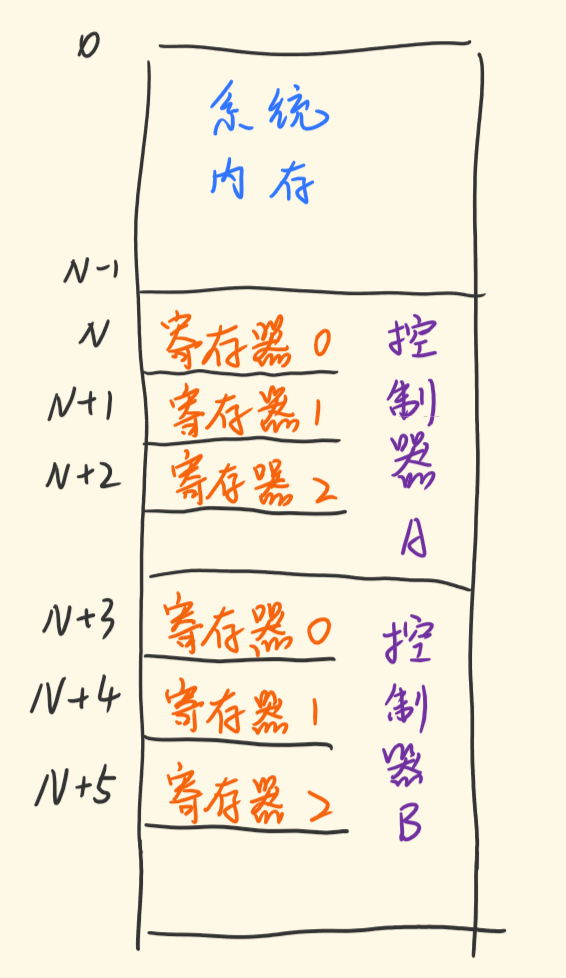 0
系统
内存
N-1
N 寄存器 0
N+1 寄存器 1
N+2 寄存器 2
控制器A
N+3 寄存器 0
N+4 寄存器 1
N+5 寄存器 2
控制器B